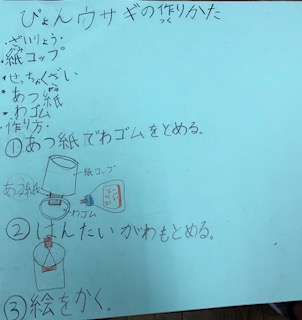 ぴょんウサギの作りかた
つく
・ざいりょう・
・紙コップ
・せっちゃくざい
・あつ紙
・わゴム
・作り方・
①あつ紙でわゴムをとめる。
紙コップ
あつ紙
わゴム
②はんたいがわもとめる。
③絵をかく。